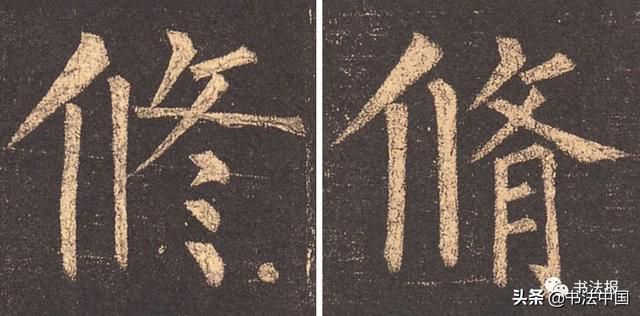 修 脩
书法报
头条 @书法中国